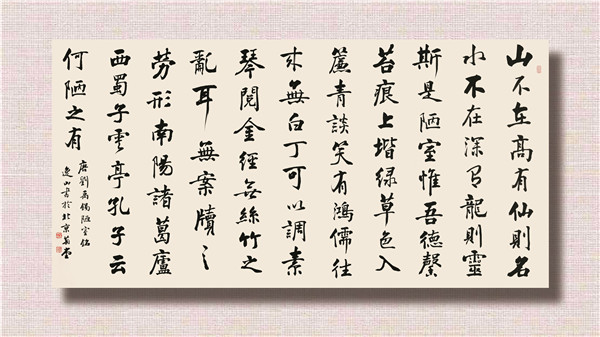 山不在高有仙則名
水不在深有龍則靈
斯是陋室惟吾德馨
苔痕上堦緑草色入
簾青談笑有鴻儒往
来無白丁可以調素
琴閱金經無絲竹之
亂耳無案牘之
勞形南陽諸葛廬
西蜀子雲亭孔子云
何陋之有
唐劉禹錫陋室銘
逸山書於北京